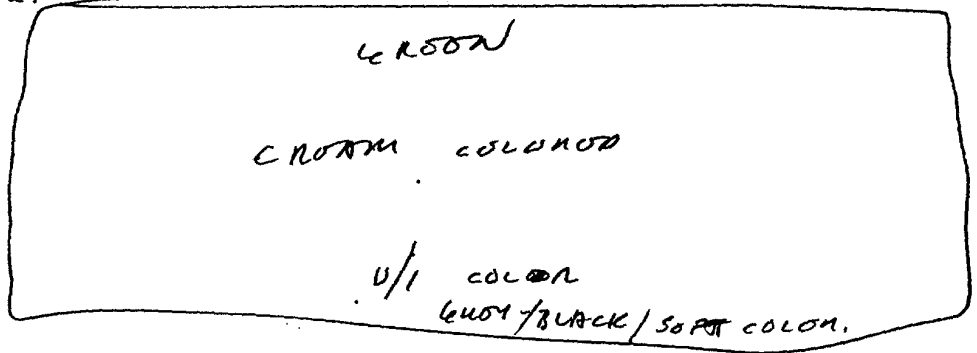 GREEN
CREAM COLORED
U/I COLOR
GREY/BLACK/SOFT COLOR.